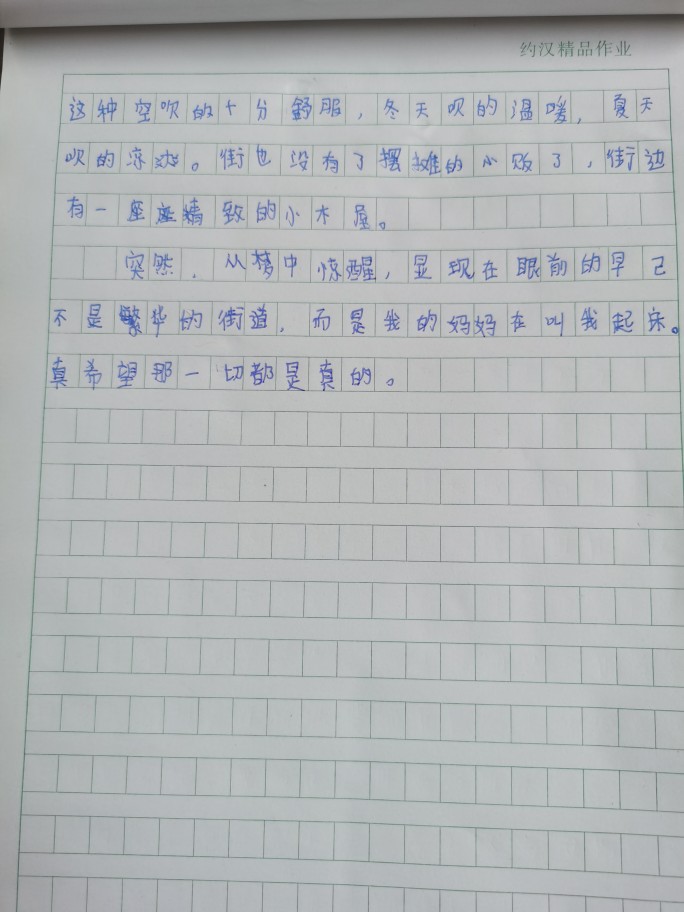 约汉精品作业
这种空吹的十分舒服，冬天吹的温暖，夏天
吹的凉爽。街也没有了摆摊的小贩了，街边
有一座座精致的小木屋。
突然，从梦中惊醒，显现在眼前的早已
不是繁华的街道，而是我的妈妈在叫我起床。
真希望那一切都是真的。